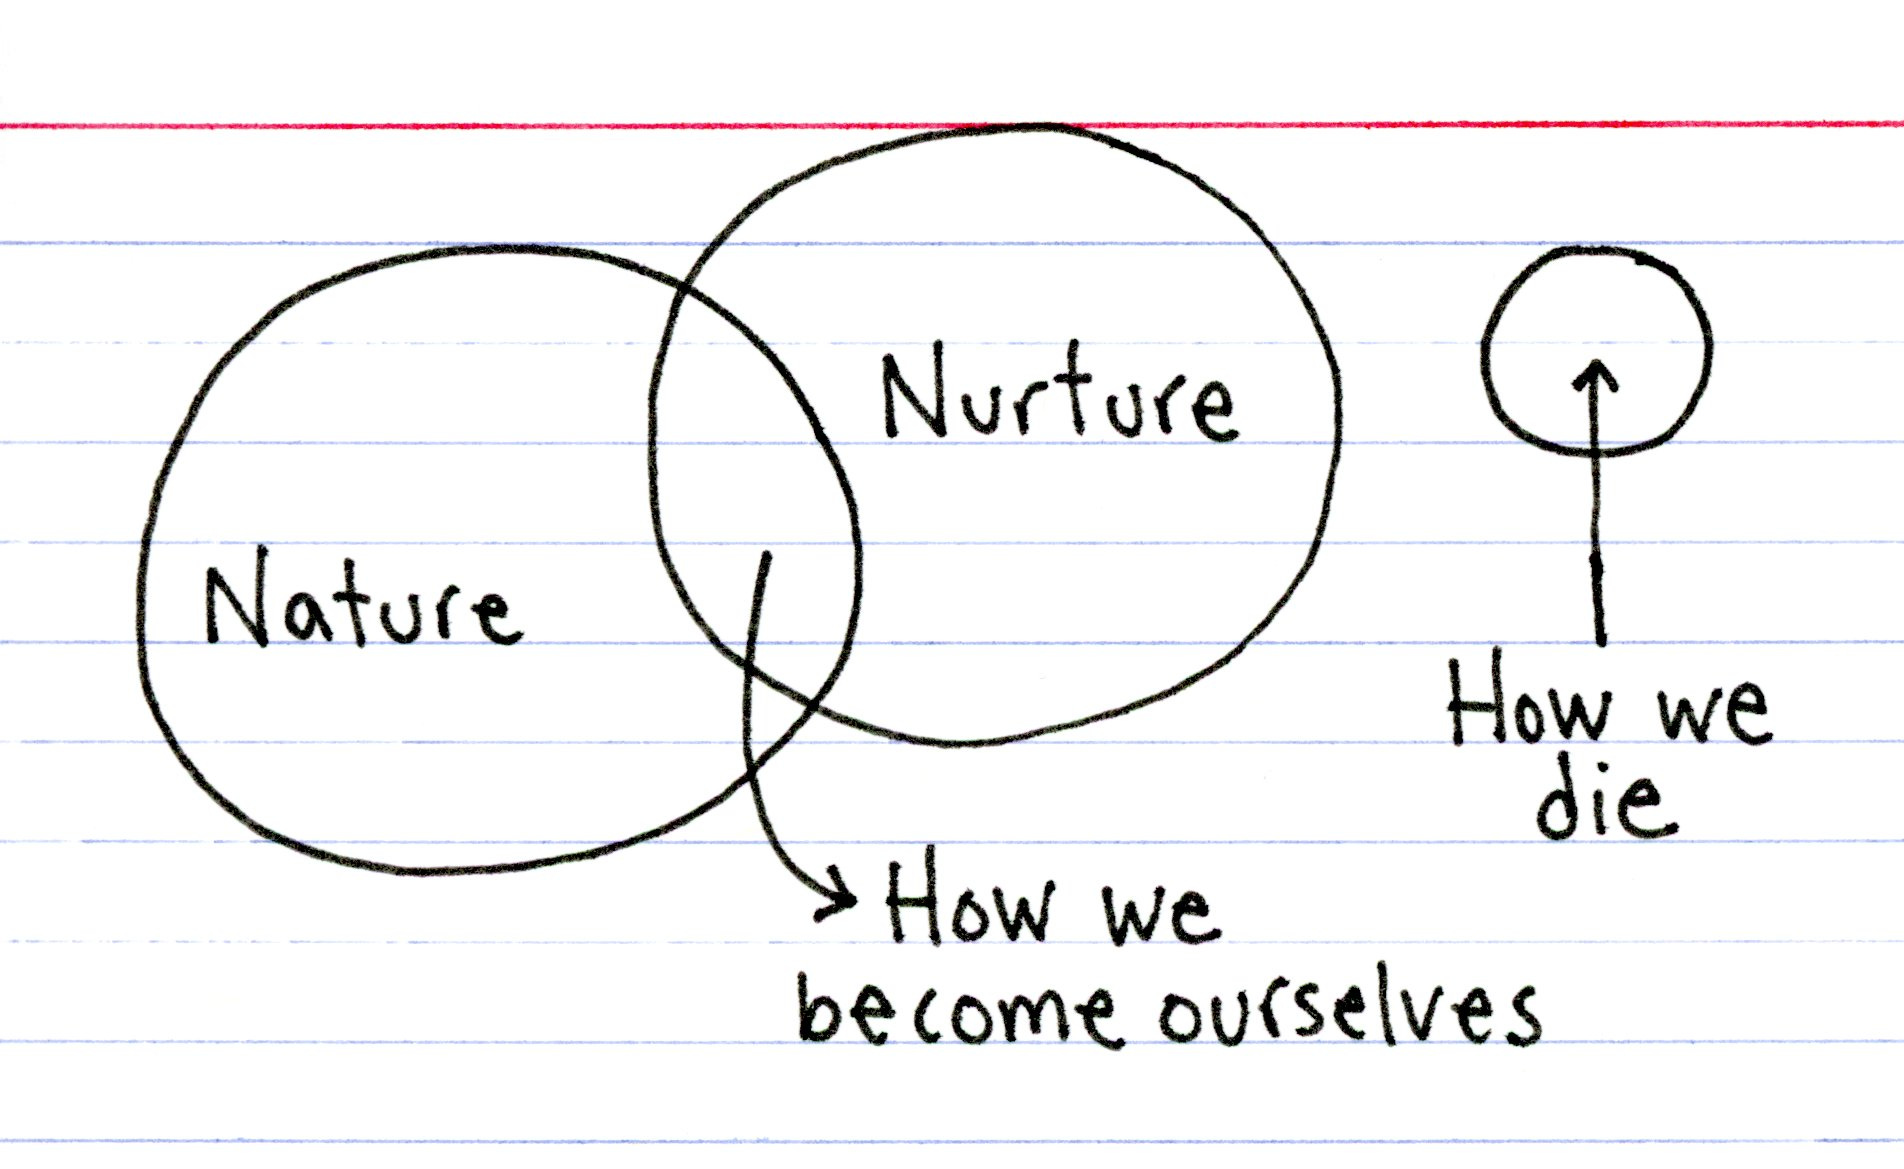 Nurture
Nature
How we
die
How we
become ourselves